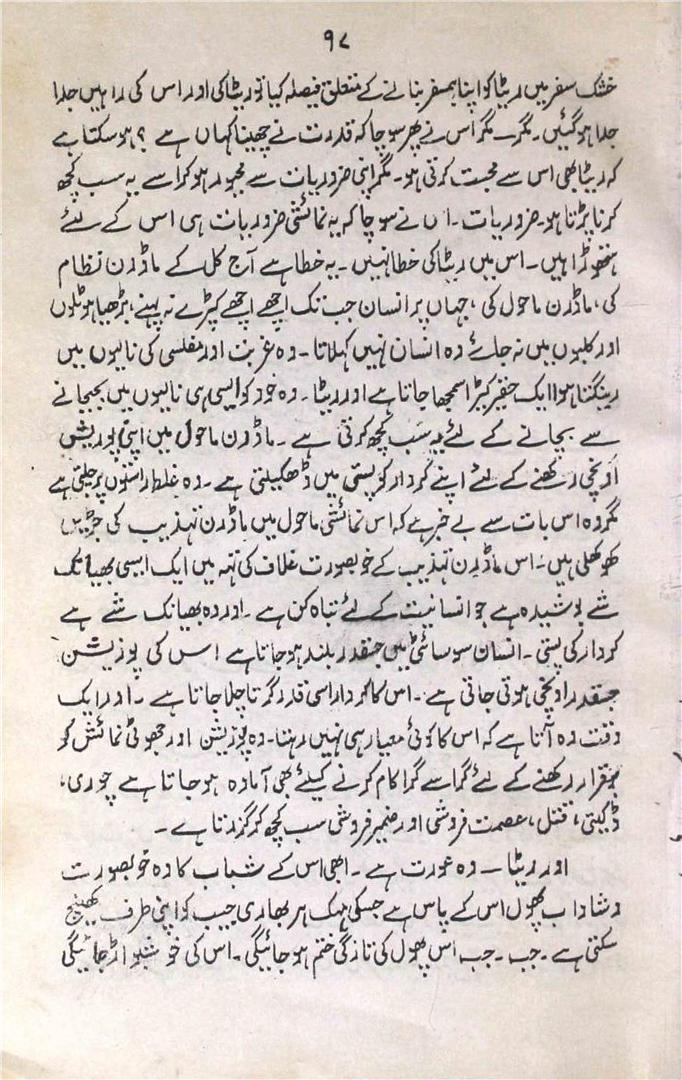 ۹۷
خشک سفر میں ریٹا کو اپنا ہمسفر بنانے کے متعلق فیصلہ کیا تو ریٹا کی اور اس کی راہیں جدا
جدا ہو گئیں۔ مگر — مگر اس نے پھر سوچا کہ قدرت نے چھینا کہاں ہے ؟ ہو سکتا ہے
کہ ریٹا بھی اس سے محبت کرتی ہو۔ مگر اپنی ضروریات سے مجبور ہو کر اسے یہ سب کچھ
کرنا پڑتا ہو۔ ضروریات۔ اس نے سوچا کہ یہ نمائشی ضروریات ہی اس کے لئے
ہتھوڑا ہیں۔ اس میں ریٹا کی خطا نہیں۔ یہ خطا ہے آج کل کے ماڈرن نظام
کی، ماڈرن ماحول کی، جہاں پر انسان جب تک اچھے اچھے کپڑے نہ پہنے، بڑھیا ہوٹلوں
اور کلبوں میں نہ جائے وہ انسان نہیں کہلاتا۔ وہ غربت اور مفلسی کی نالیوں میں
رینگتا ہوا ایک حقیر کیڑا سمجھا جاتا ہے اور ریٹا۔ وہ خود کو ایسی ہی نالیوں میں بجبجانے
سے بچانے کے لئے یہ سب کچھ کرتی ہے۔ ماڈرن ماحول میں اپنی پوزیشن
اونچی رکھنے کے لئے اپنے کردار کو پستی میں ڈھکیلتی ہے۔ وہ غلط راستوں پر چلتی ہے
مگر وہ اس بات سے بے خبر ہے کہ اس نمائشی ماحول میں ماڈرن تہذیب کی جڑیں
کھوکھلی ہیں۔ اس ماڈرن تہذیب کے خوبصورت غلاف کی تہہ میں ایک ایسی بھیانک
شے پوشیدہ ہے جو انسانیت کے لئے تباہ کن ہے۔ اور وہ بھیانک شے ہے
کردار کی پستی۔ انسان سوسائٹی میں جسقدر بلند ہو جاتا ہے اس کی پوزیشن
جسقدر اونچی ہوتی جاتی ہے۔ اس کا کردار اسی قدر گرتا چلا جاتا ہے۔ اور ایک
وقت وہ آتا ہے کہ اس کا کوئی معیار ہی نہیں رہتا۔ وہ پوزیشن اور جھوٹی نمائش کو
برقرار رکھنے کے لئے گرا سے گرا کام کرنے کیلئے بھی آمادہ ہو جاتا ہے چوری،
ڈکیتی، قتل، عصمت فروشی اور ضمیر فروشی سب کچھ کر گزرتا ہے۔
اور ریٹا — وہ عورت ہے۔ ابھی اس کے شباب کا وہ خوبصورت
و شاداب پھول اس کے پاس ہے جسکی مہک ہر بھاری جیب کو اپنی طرف کھینچ
سکتی ہے۔ جب۔ جب اس پھول کی تازگی ختم ہو جائیگی۔ اس کی خوشبو اڑ جائیگی